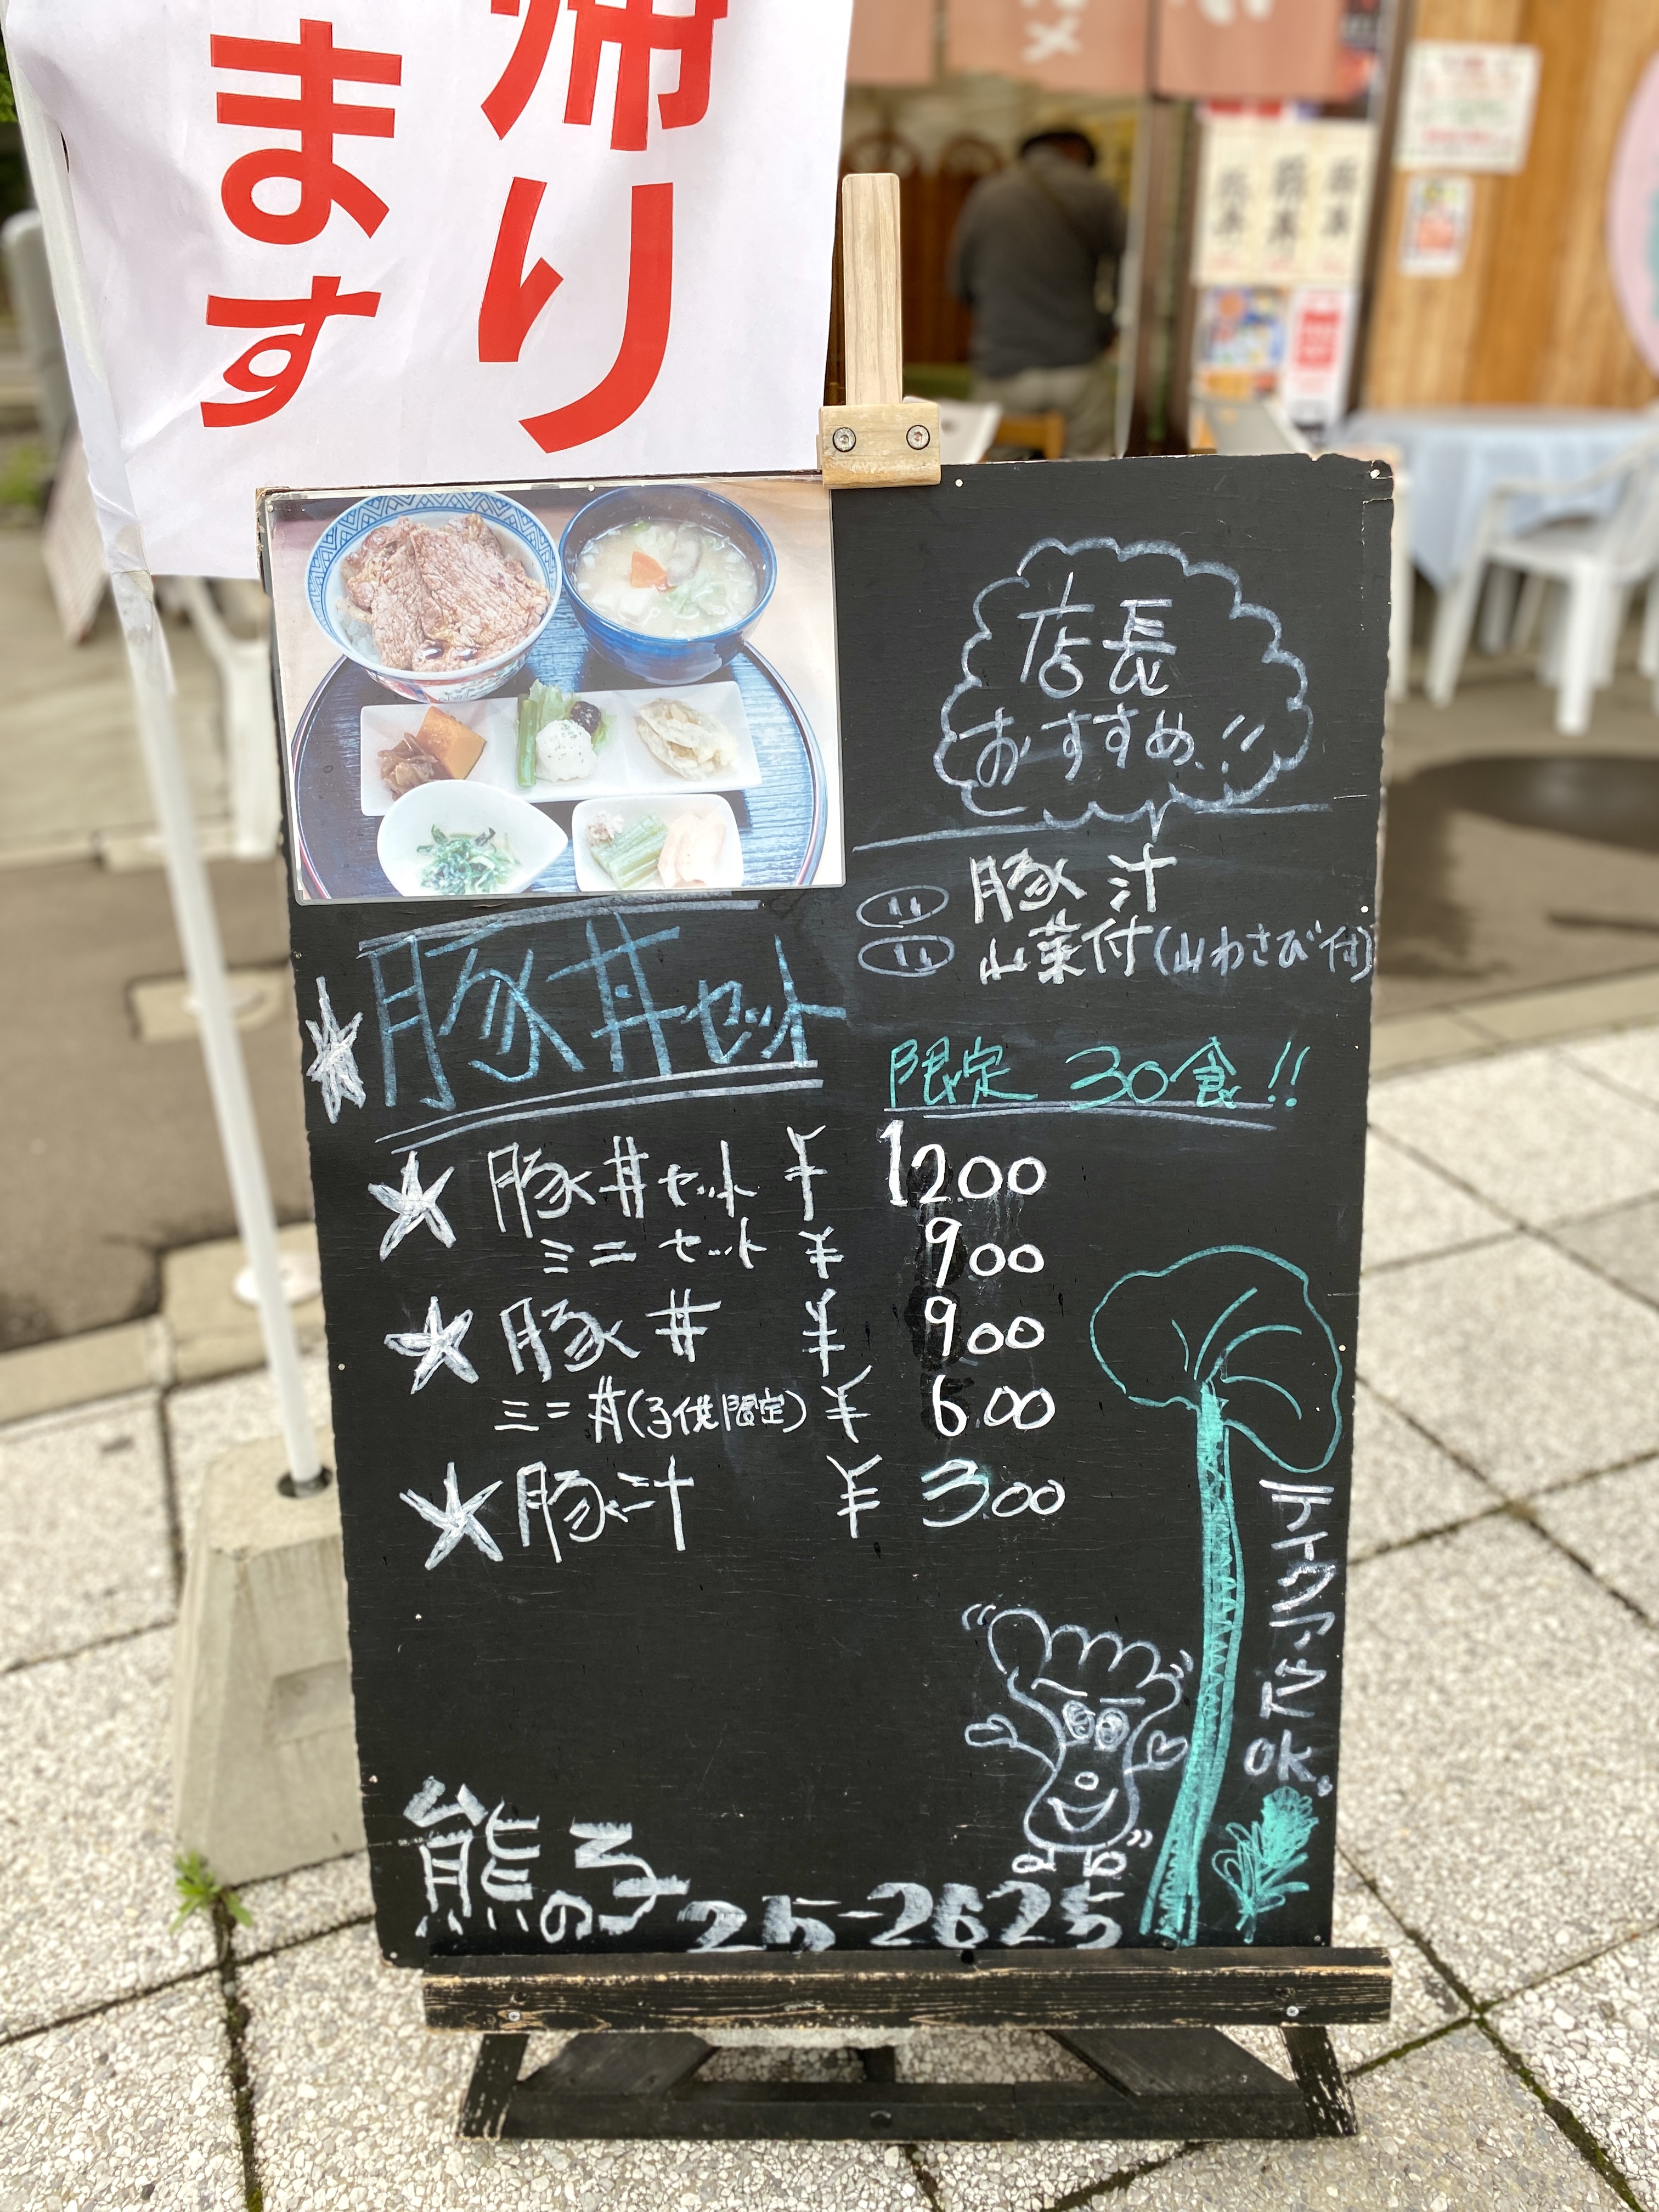 帰り
ます
店長
おすすめ!!
豚汁
山菜付(山わさび付)
豚丼セット
限定 30食!!
豚丼セット ¥1200
ミニセット ¥900
豚丼 ¥900
ミニ丼(子供限定) ¥600
豚汁 ¥300
OK.
熊の子 25-2625